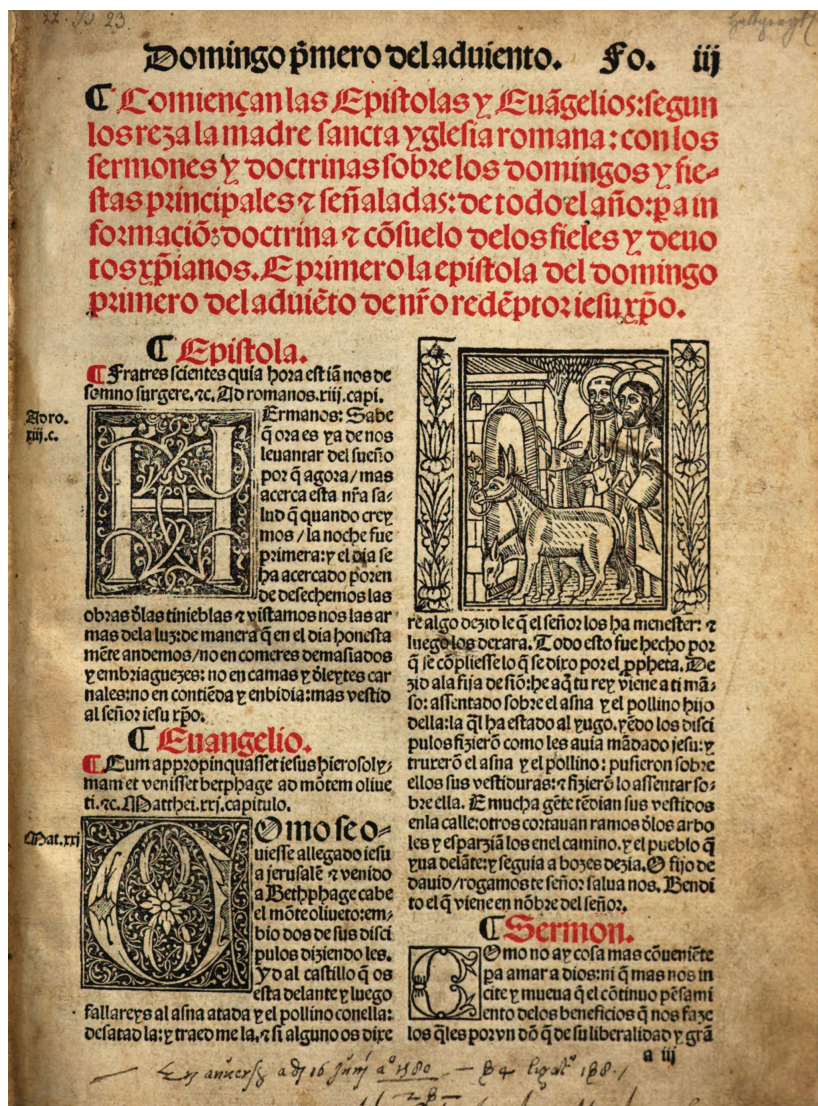 22. 23.
Domingo p̃mero del aduiento. Fo. iij
¶ Comiençan las Epistolas y Euãgelios: segun
los reza la madre sancta yglesia romana: con los
sermones y doctrinas sobre los domingos y fie-
stas principales ⁊ señaladas: de todo el año: ꝑa in
formaciõ: doctrina ⁊ cõsuelo delos fieles y deuo
tos xp̃ianos. E primero la epistola del domingo
primero del aduiẽto de nr̃o redẽptor iesu xp̃o.
¶ Epistola.
¶ Fratres scientes quia hora est iã nos de
somno surgere. ⁊c. Ad romanos. xiij. capi.
Ad ro.
xiij. c.
HErmanos: Sabe
q̃ ora es ya de nos
leuantar del sueño
por q̃ agora / mas
acerca esta nr̃a sa-
lud q̃ quando crey
mos / la noche fue
primera: y el dia se
ha acercado poren
de desechemos las
obras d̃las tinieblas ⁊ vistamos nos las ar
mas dela luz: de manera q̃ en el dia honesta
mẽte andemos / no en comeres demasiados
y embriaguezes: no en camas y d̃leytes car
nales: no en contiẽda y enbidia: mas vestid
al señor iesu xp̃o.
¶ Euangelio.
¶ Cum appropinquasset iesus hierosoly-
mam et venisset betphage ad mõtem oliue
ti. ⁊c. Matthei. xxj. capitulo.
Mat. xxj
COmo se o-
uiesse allegado iesu
a jerusalẽ ⁊ venido
a Bethphage cabe
el mõte oliueto: em-
bio dos de sus disci
pulos diziendo les.
Yd al castillo q̃ os
esta delante y luego
fallareys al asna atada y el pollino conella:
desatad la: y traed me la. ⁊ si alguno os dixe
re algo dezid le q̃ el señor los ha menester: ⁊
luego los dexara. Todo esto fue hecho por
q̃ se cõpliesse lo q̃ se dixo por el ꝓpheta. De
zid ala fija de siõ: he aq̃ tu rey viene a ti mã-
so: assentado sobre el asna y el pollino hijo
della: la q̃l ha estado al yugo. yẽdo los disci
pulos fizierõ como les auia mãdado jesu: y
truxerõ el asna y el pollino: pusieron sobre
ellos sus vestiduras: ⁊ fizierõ lo assentar so-
bre ella. E mucha gẽte tẽdian sus vestidos
enla calle: otros cortauan ramos d̃los arbo
les y esparziã los enel camino. y el pueblo q̃
yua delãte: y seguia a bozes dezia. O fijo de
dauid / rogamos te señor salua nos. Bendi
to el q̃ viene en nõbre del señor.
¶ Sermon.
COmo no ay cosa mas cõueniẽte
ꝑa amar a dios: ni q̃ mas nos in
cite y mueua q̃ el cõtinuo pẽsami
ento delos beneficios q̃ nos faze
los q̃les por vn dõ q̃ de su liberalidad y grã
a iij